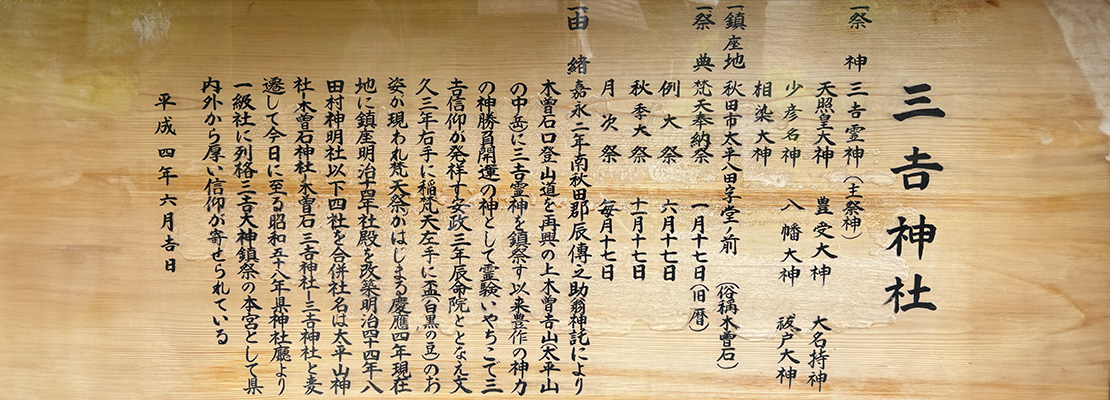 三𠮷神社
一祭神 三𠮷霊神(主祭神)
天照皇大神 豊受大神 大名持神
少彦名神 八幡大神 祓戸大神
相染大神
一鎮座地 秋田市太平八田字堂ノ前(俗稱木曽石)
一祭典 梵天奉納祭 一月十七日(旧暦)
例大祭 六月十七日
秋季大祭 十一月十七日
月次祭 毎月十七日
一由緒 嘉永二年南秋田郡辰傳之助翁神託により
木曽石口登山道を再興の上木曽𠮷山(太平山
の中岳)に三𠮷霊神を鎮祭す以来豊作の神力
の神勝負開運の神として霊験いやちこで三
𠮷信仰が発祥す安政三年辰命院ととなえ文
久三年右手に稲梵天左手に盃(白黒の豆)のお
姿が現われ梵天祭がはじまる慶應四年現在
地に鎮座明治十四年社殿を改築明治四十四年八
田村神明社以下四社を合併社名は太平山神
社−木曽石神社−木曽石三𠮷神社−三𠮷神社と変
遷して今日に至る昭和五十八年県神社廳より
一級社に列格三𠮷大神鎮祭の本宮として県
内外から厚い信仰が寄せられている
平成四年六月𠮷日